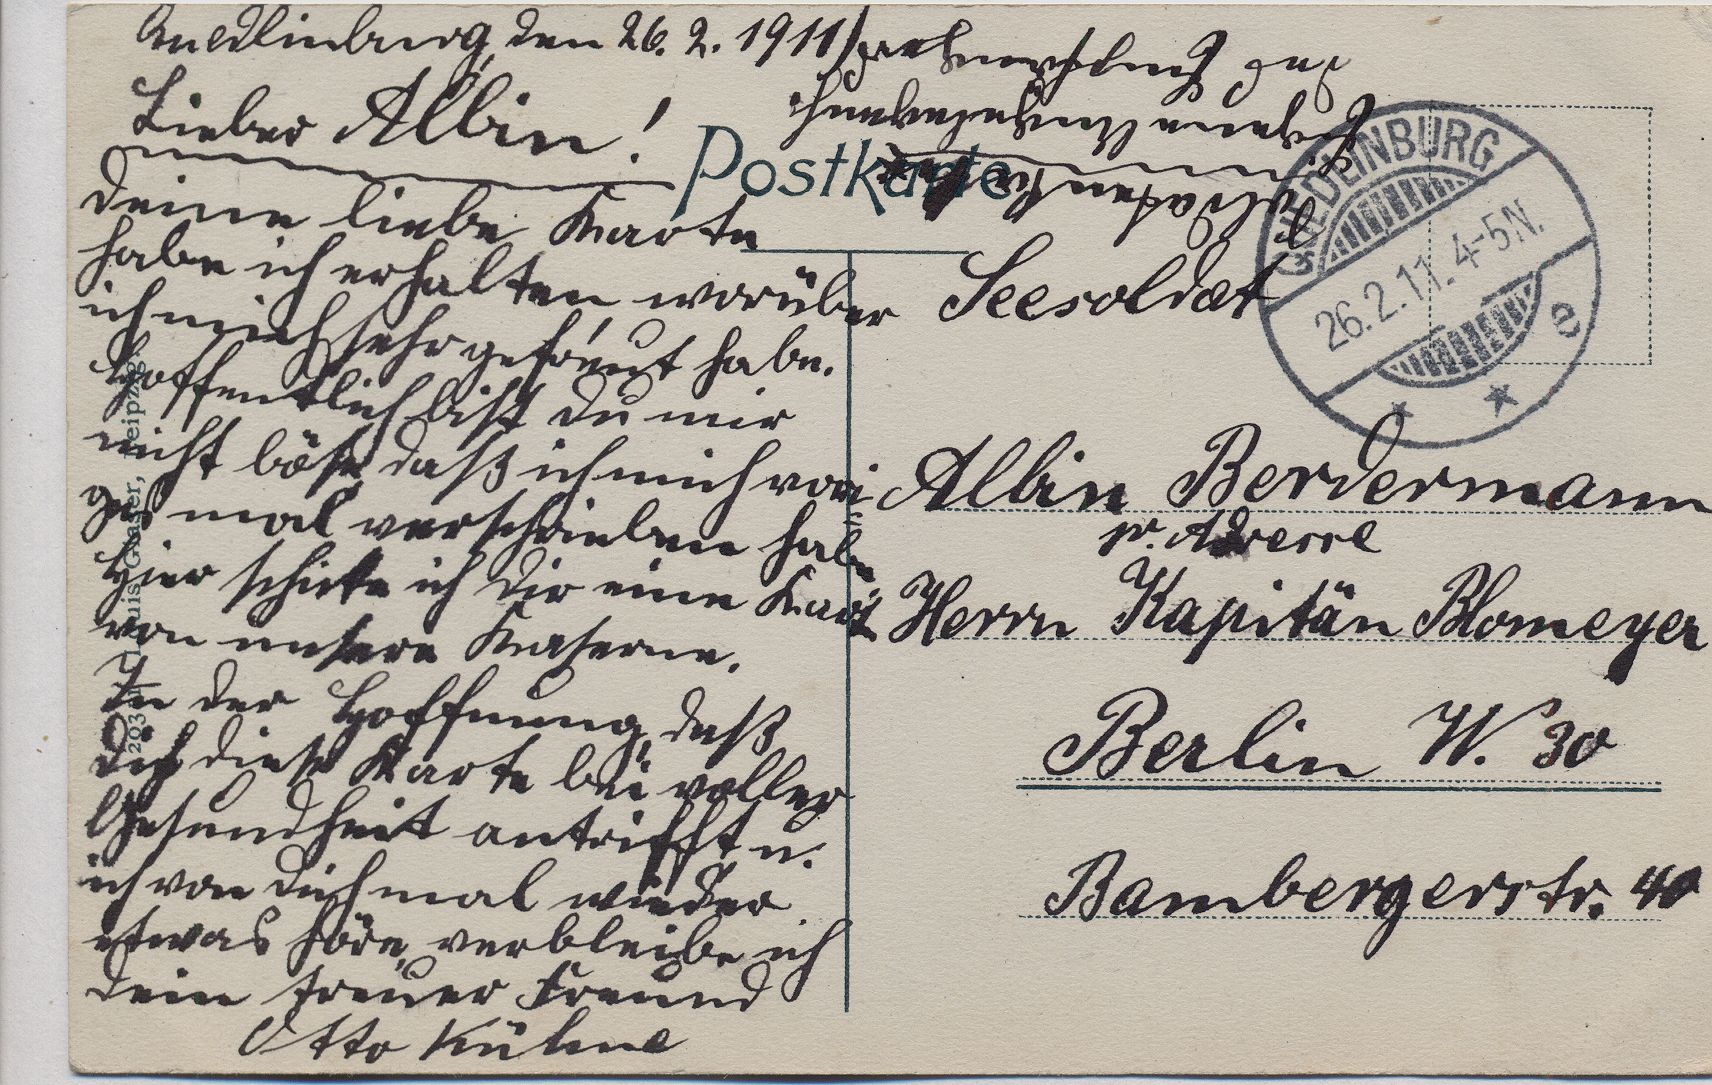 Quedlinburg, den 26. 2. 1911
Lieber Albin!
Deine liebe Karte
habe ich erhalten, worüber
ich mich sehr gefreut habe.
Hoffentlich bist du mir
nicht böse, daß ich mich vori
ges mal verschrieben habe
Hier schicke ich dir eine Karte
von unsere Kaserne.
In der Hoffnung, daß
dich diese Karte bei voller
Gesundheit antrifft u.
ich von dich mal wieder
etwas höre, verbleibe ich
dein treuer Freund
Otto Kühne
Soldatenkarte
Postkarte
QUEDLINBURG
26.2.11. 4-5N.
* * e
Seesoldat
Albin Berdermann
pr. Adresse
Herrn Kapitän Blomeyer
Berlin W. 30
Bambergerstr. 40
Louis Glaser, Leipzig.